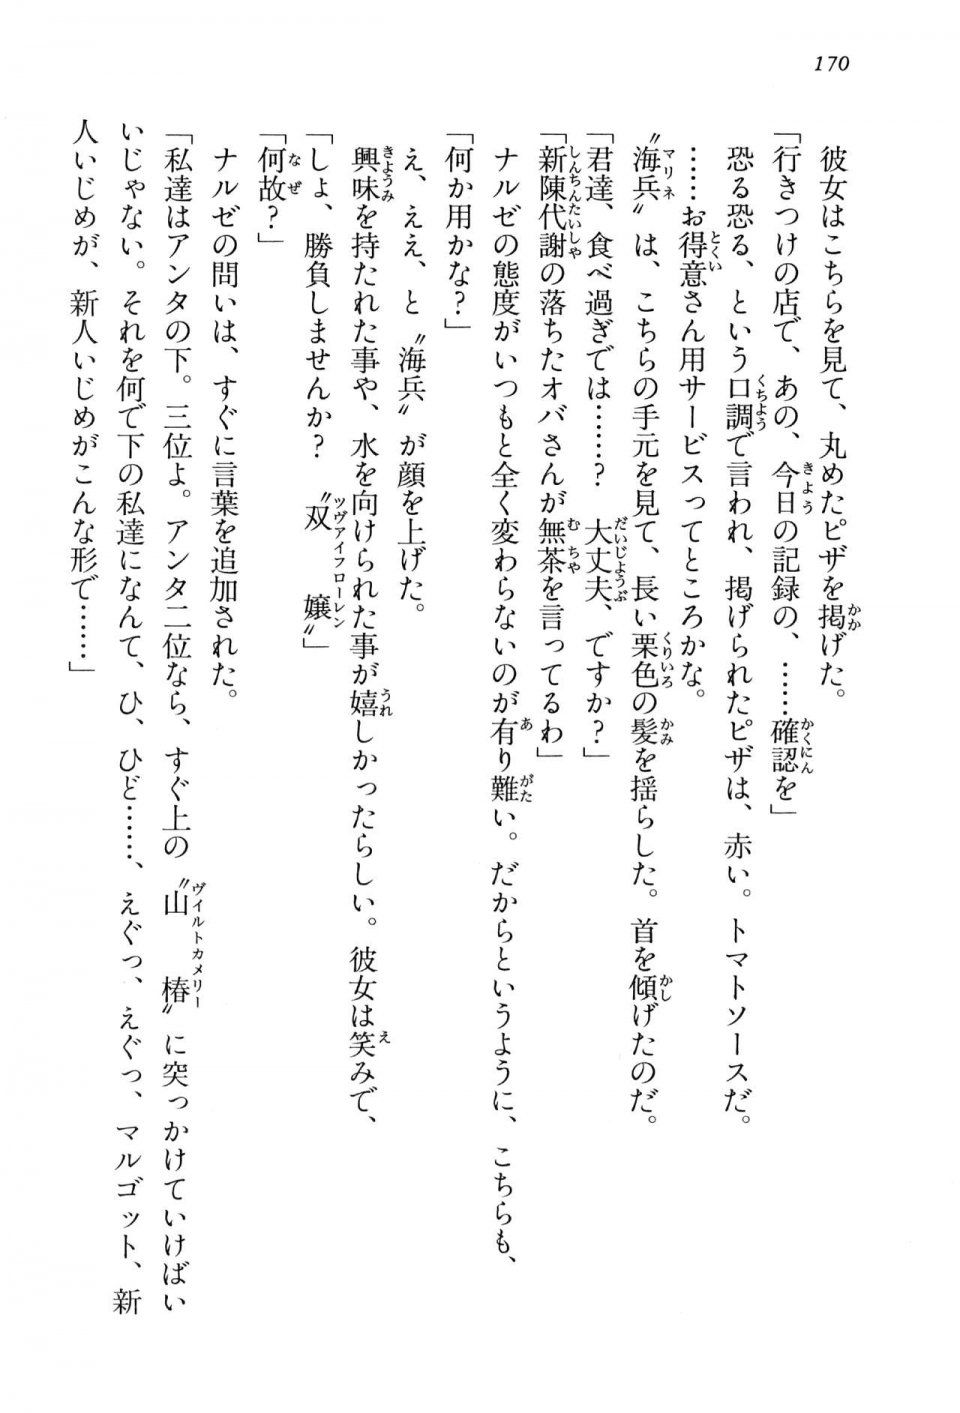 170
彼女はこちらを見て、丸めたピザを掲げた。
「行きつけの店で、あの、今日の記録の、……確認を」
恐る恐る、という口調で言われ、掲げられたピザは、赤い。トマトソースだ。
……お得意さん用サービスってところかな。
〝海兵〟は、こちらの手元を見て、長い栗色の髪を揺らした。首を傾げたのだ。
「君達、食べ過ぎでは……？　大丈夫、ですか？」
「新陳代謝の落ちたオバさんが無茶を言ってるわ」
ナルゼの態度がいつもと全く変わらないのが有り難い。だからというように、こちらも、
「何か用かな？」
え、ええ、と〝海兵〟が顔を上げた。
興味を持たれた事や、水を向けられた事が嬉しかったらしい。彼女は笑みで、
「しょ、勝負しませんか？　〝双嬢〟」
「何故？」
ナルゼの問いは、すぐに言葉を追加された。
「私達はアンタの下。三位よ。アンタ二位なら、すぐ上の〝山椿〟に突っかけていけばい
いじゃない。それを何で下の私達になんて、ひ、ひど……、えぐっ、えぐっ、マルゴット、新
人いじめが、新人いじめがこんな形で……」